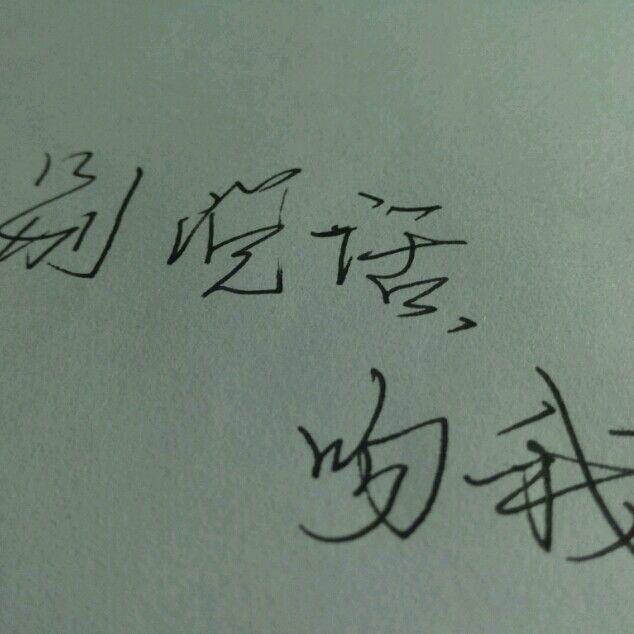 别说话,
吻我